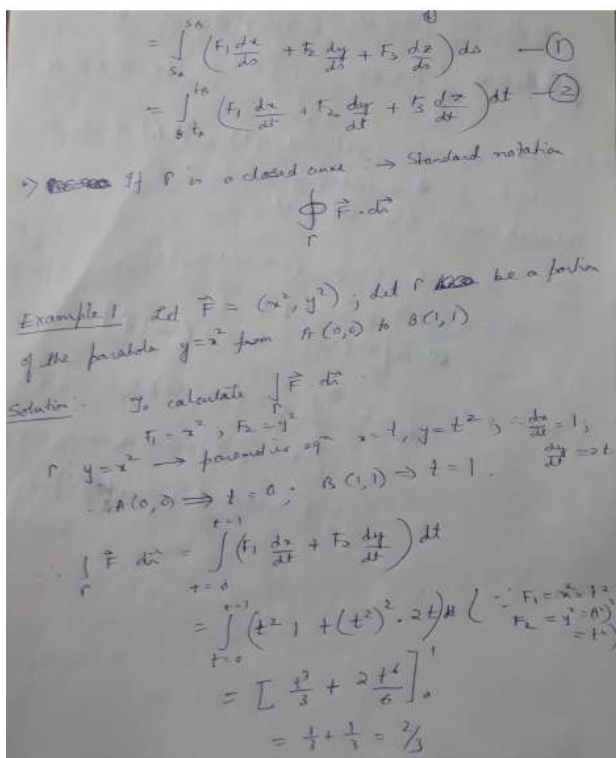 = ∫_{S_A}^{S_B} (F₁ dx/ds + F₂ dy/ds + F₃ dz/ds) ds — ①
= ∫_{t_A}^{t_B} (F₁ dx/dt + F₂ dy/dt + F₃ dz/dt) dt — ②
If Γ is a closed curve :→ Standard notation
∮_Γ F⃗ . dr⃗
Example 1. Let F⃗ = (x², y²) ; Let Γ be a portion
of the parabola y=x² from A(0,0) to B(1,1)
Solution:- To calculate ∫_Γ F⃗ dr⃗ .
F₁ = x² , F₂ = y²
Γ y=x² → parametric eqn x=t, y=t² ; ∴ dx/dt = 1 ;
dy/dt = 2t
∴ A(0,0) ⇒ t = 0 ; B(1,1) ⇒ t = 1 .
∴ ∫_Γ F⃗ dr⃗ = ∫_{t=0}^{t=1} (F₁ dx/dt + F₂ dy/dt) dt
= ∫_{t=0}^{t=1} (t² 1 + (t²)² · 2t) dt ( ∵ F₁ = x² = t²
F₂ = y² = (t²)²
= t⁴)
= [ t³/3 + 2t⁶/6 ]₀¹
= 1/3 + 1/3 = 2/3